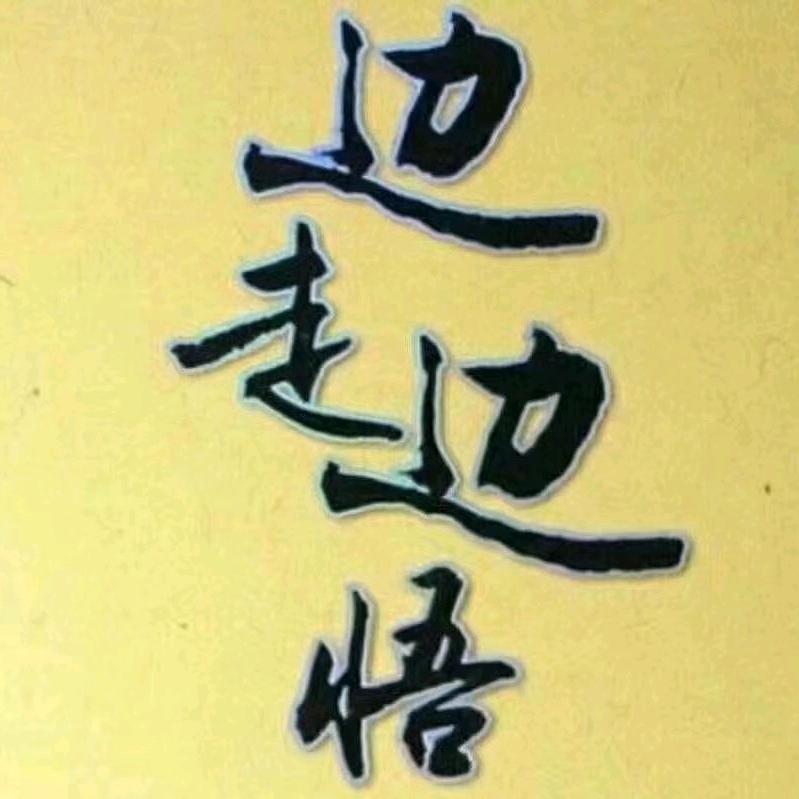 边走边悟